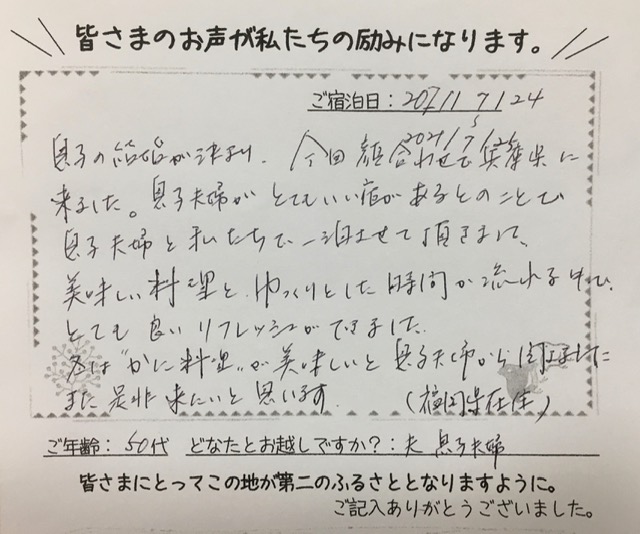 皆さまのお声が私たちの励みになります。
ご宿泊日:2021/7/24
2021/7/
息子の結婚が決まり、今回顔合わせで兵庫県に
来ました。息子夫婦がとてもいい宿があるとのことで
息子夫婦と私たちで一泊させて頂きまして、
美味しい料理と、ゆっくりとした時間が流れる中で、
とても良いリフレッシュができました。
冬は"かに料理"が美味しいと息子夫婦から聞きましたので
また是非来たいと思います。(福岡県在住)
ご年齢:50代 どなたとお越しですか?:夫 息子夫婦
皆さまにとってこの地が第二のふるさととなりますように。
ご記入ありがとうございました。